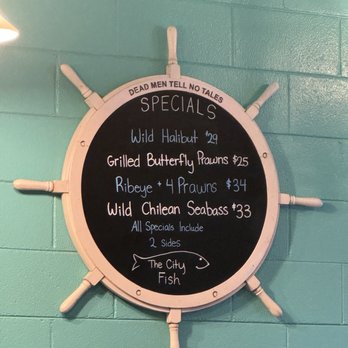 DEAD MEN TELL NO TALES
SPECIALS
Wild Halibut $29
Grilled Butterfly Prawns $25
Ribeye + 4 Prawns $34
Wild Chilean Seabass $33
All Specials Include
2 Sides
The City
Fish